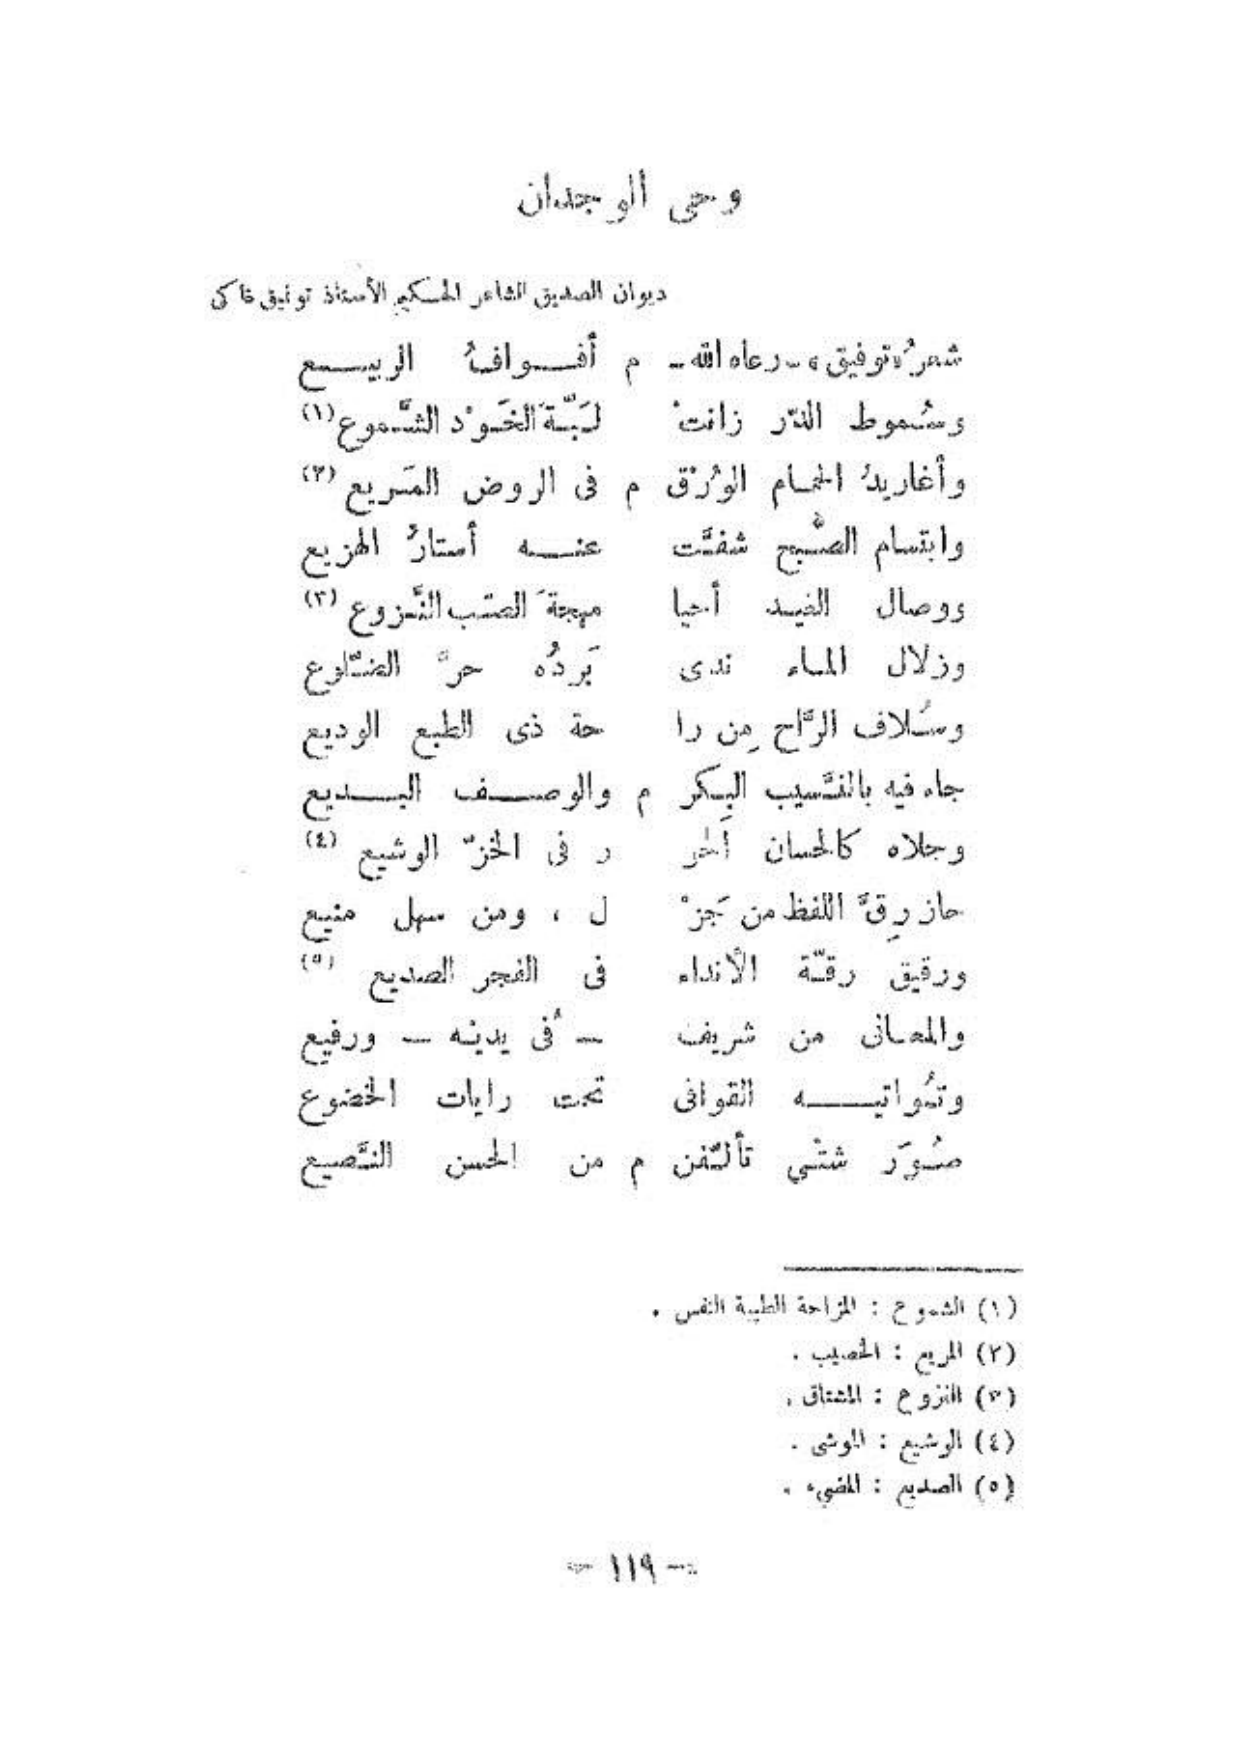 وحى الوجدان
ديوان الصديق الشاعر الحكيم الأستاذ توفيق فاكى
شعرُ «توفيق» ـ رعاه الله ـ م أفوافُ الربيع
وسُموط الدّر زانتْ لَبّةَ الخَوْد الشَّموع (١)
وأغاريدُ الحمام الوُرْق م فى الروض المَريع (٢)
وابتسام الصُّبح شفَّت عنه أستارُ الهزيع
ووصال الغيد أحيا مهجةَ الصّب النَّزوع (٣)
وزلال الماء ندى بَردُه حرَّ الضّلوع
وسُلاف الرَّاح مِن را حة ذى الطبع الوديع
جاء فيه بالنَّسيب البِكر م والوصف البديع
وجلاه كالحسان الحو ر فى الخزّ الوشيع (٤)
حاز رِقَّ اللفظ من جَزْ ل ، ومن سهل منيع
ورقيق رقّة الأنداء فى الفجر الصديع (٥)
والمعانى من شريف ــ فى يديْه ــ ورفيع
وتُواتيه القوافى تحت رايات الخضوع
صُوَر شتَّى تألّفن م من الحسن النَّصيع
(١) الشموع : المزاحة الطيبة النفس .
(٢) المريع : الخصيب .
(٣) النزوع : المشتاق .
(٤) الوشيع : الموشى .
(٥) الصديع : المضىء .
– ١١٩ –